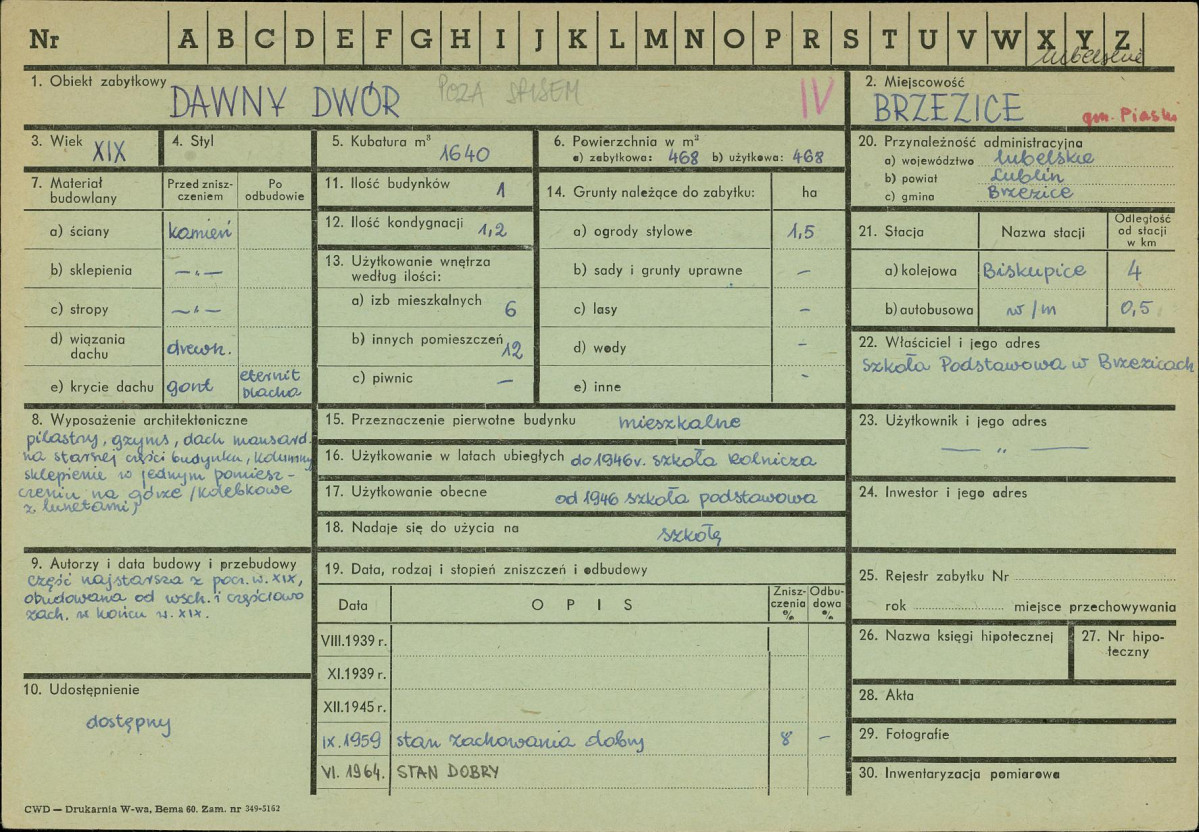 Nr A B C D E F G H I J K L M N O P R S T U V W X Y Z
lubelskie
1. Obiekt zabytkowy
DAWNY DWÓR
POZA SPISEM
IV
2. Miejscowość
BRZEZICE
gm. Piaski
3. Wiek XIX
4. Styl
5. Kubatura m³ 1640
6. Powierzchnia w m²
a) zabytkowa: 468 b) użytkowa: 468
20. Przynależność administracyjna
a) województwo lubelskie
b) powiat Lublin
c) gmina Brzezice
7. Materiał budowlany
Przed zniszczeniem
Po odbudowie
a) ściany kamień
b) sklepienia —„—
c) stropy —„—
d) wiązania dachu drewn.
e) krycie dachu gont eternit blacha
11. Ilość budynków 1
12. Ilość kondygnacji 1,2
13. Użytkowanie wnętrza
według ilości:
a) izb mieszkalnych 6
b) innych pomieszczeń 12
c) piwnic —
14. Grunty należące do zabytku: ha
a) ogrody stylowe 1,5
b) sady i grunty uprawne —
c) lasy —
d) wody —
e) inne -
21. Stacja
Nazwa stacji
Odległość
od stacji
w km
a) kolejowa Biskupice 4
b) autobusowa w/m 0,5
22. Właściciel i jego adres
Szkoła Podstawowa w Brzezicach
8. Wyposażenie architektoniczne
pilastry, gzyms, dach mansard.
na starszej części budynku, kolumny
sklepienie w jednym pomiesz-
czeniu na górze /kolebkowe
z lunetami/
15. Przeznaczenie pierwotne budynku mieszkalne
16. Użytkowanie w latach ubiegłych do 1946 r. szkoła rolnicza
17. Użytkowanie obecne od 1946 szkoła podstawowa
18. Nadaje się do użycia na szkołę
23. Użytkownik i jego adres
— „ —
24. Inwestor i jego adres
9. Autorzy i data budowy i przebudowy
część najstarsza z pocz. w. XIX,
obudowana od wsch. i częściowo
zach. w końcu w. XIX.
10. Udostępnienie
dostępny
19. Data, rodzaj i stopień zniszczeń i odbudowy
Data
OPIS
Znisz-
czenia
%
Odbu-
dowa
%
VIII.1939 r.
XI.1939 r.
XII.1945 r.
IX.1959 stan zachowania dobry 8 —
VI. 1964. STAN DOBRY
25. Rejestr zabytku Nr
rok miejsce przechowywania
26. Nazwa księgi hipotecznej
27. Nr hipo-
teczny
28. Akta
29. Fotografie
30. Inwentaryzacja pomiarowa
CWD — Drukarnia W-wa, Bema 60. Zam. nr 349-5162